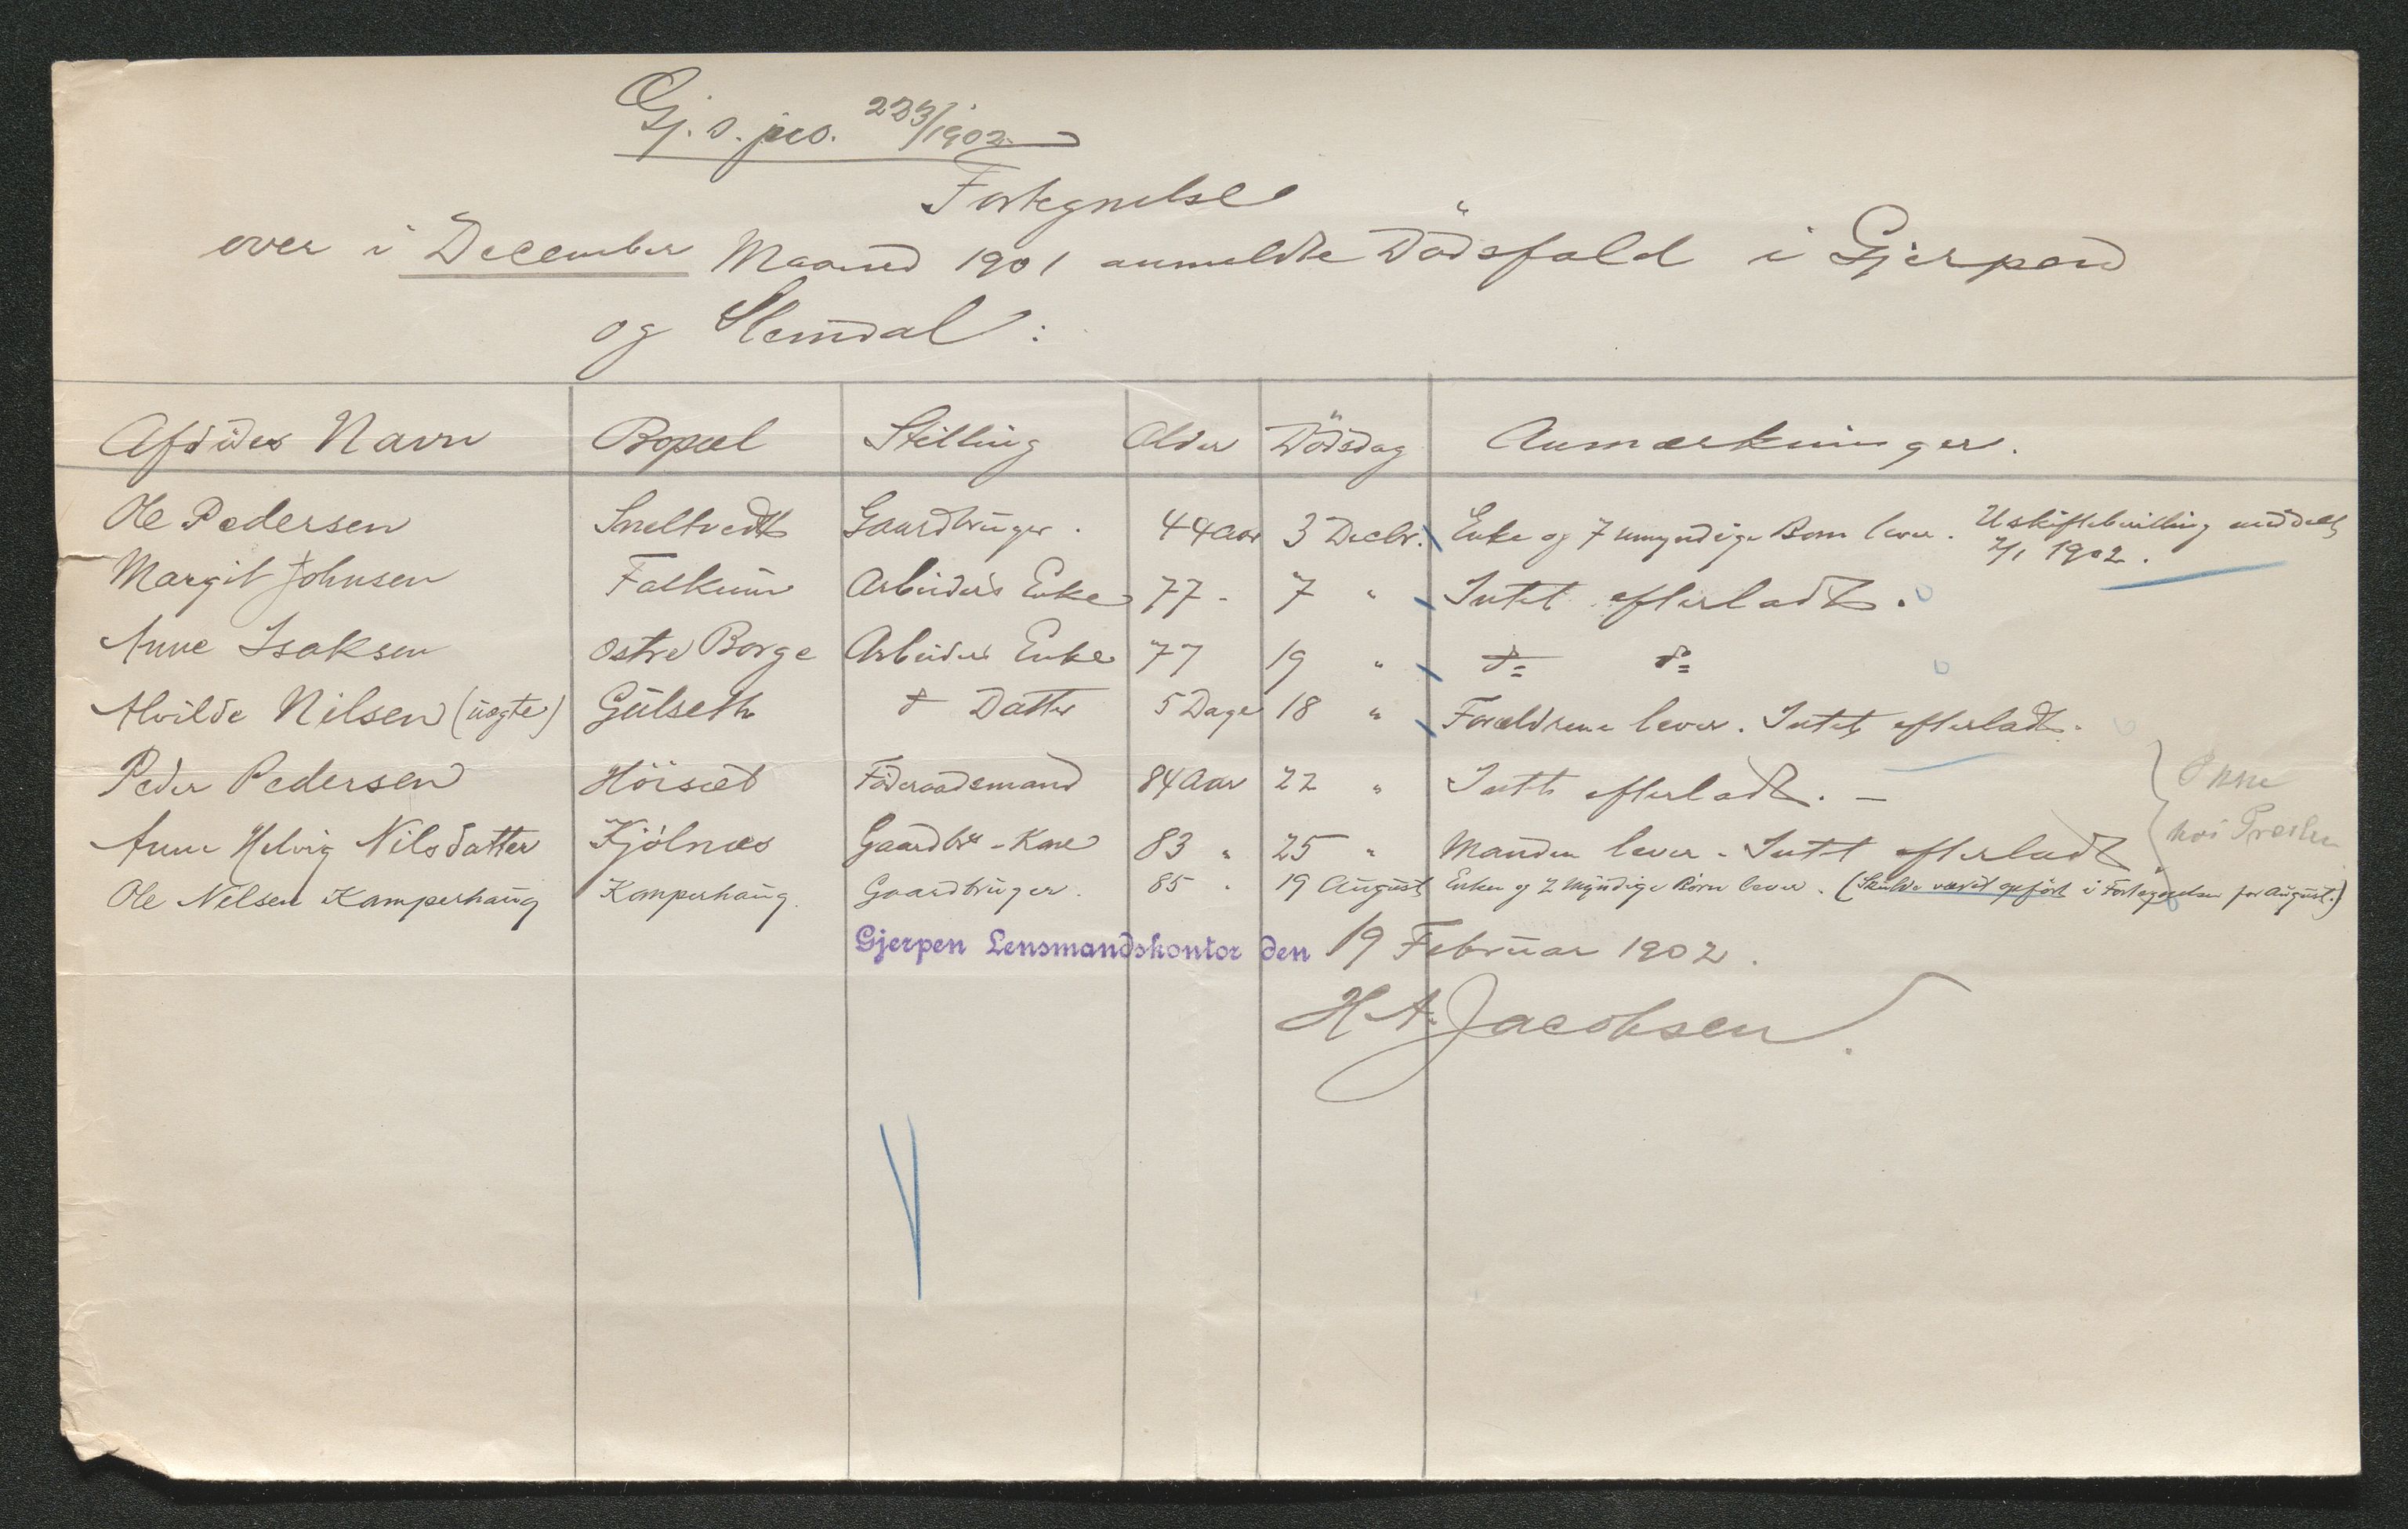 Gj. s. jno. 223/1902
Fortegnelse
over i December Maaned 1901 anmeldte Dödsfald i Gjerpen
og Slemdal:
Afdödes Navn Bopæl Stilling Alder Dödsdag Anmærkninger.
Ole Pedersen Sneltvedt Gaardbruger. 44 Aar 3 Decbr. Enke og 7 umyndige Börn lever. Uskiftebevilling meddelt
2/1 1902.
Margit Johnsen Falkum Arbeiders Enke 77 - 7 " Intet efterladt.
Anne Isaksen Østre Borge Arbeiders Enke 77 19 " do do
Alvilde Nilsen (uægte) Gulseth d Datter 5 Dage 18 " Forældrene lever. Intet efterladt.
Peder Pedersen Höisæt Föderaadsmand 84 Aar 22 " Intet efterladt. —
Anne Helvig Nilsdatter Kjölnæs Gaardbrs - Kone 83 " 25 " Manden lever - Intet efterladt
Ole Nilsen Kamperhaug Kamperhaug. Gaardbruger. 85 " 19 August Enken og 2 myndige Börn lever. (Skulde været opfört i Fortegnelsen for August.)
hos Presten
Gjerpen Lensmandskontor den 19 Februar 1902.
H. A. Jacobsen.